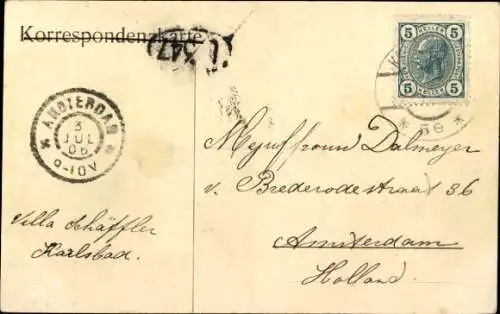 Korrespondenzkarte
547
5 HELLER 5
HELLER
5e
AMSTERDAM
3
JUL
06
9-10V
Mejuffrouw Dalmeyer
v. Brederodestraat 36
Amsterdam
Holland.
Villa Schäffler
Karlsbad.